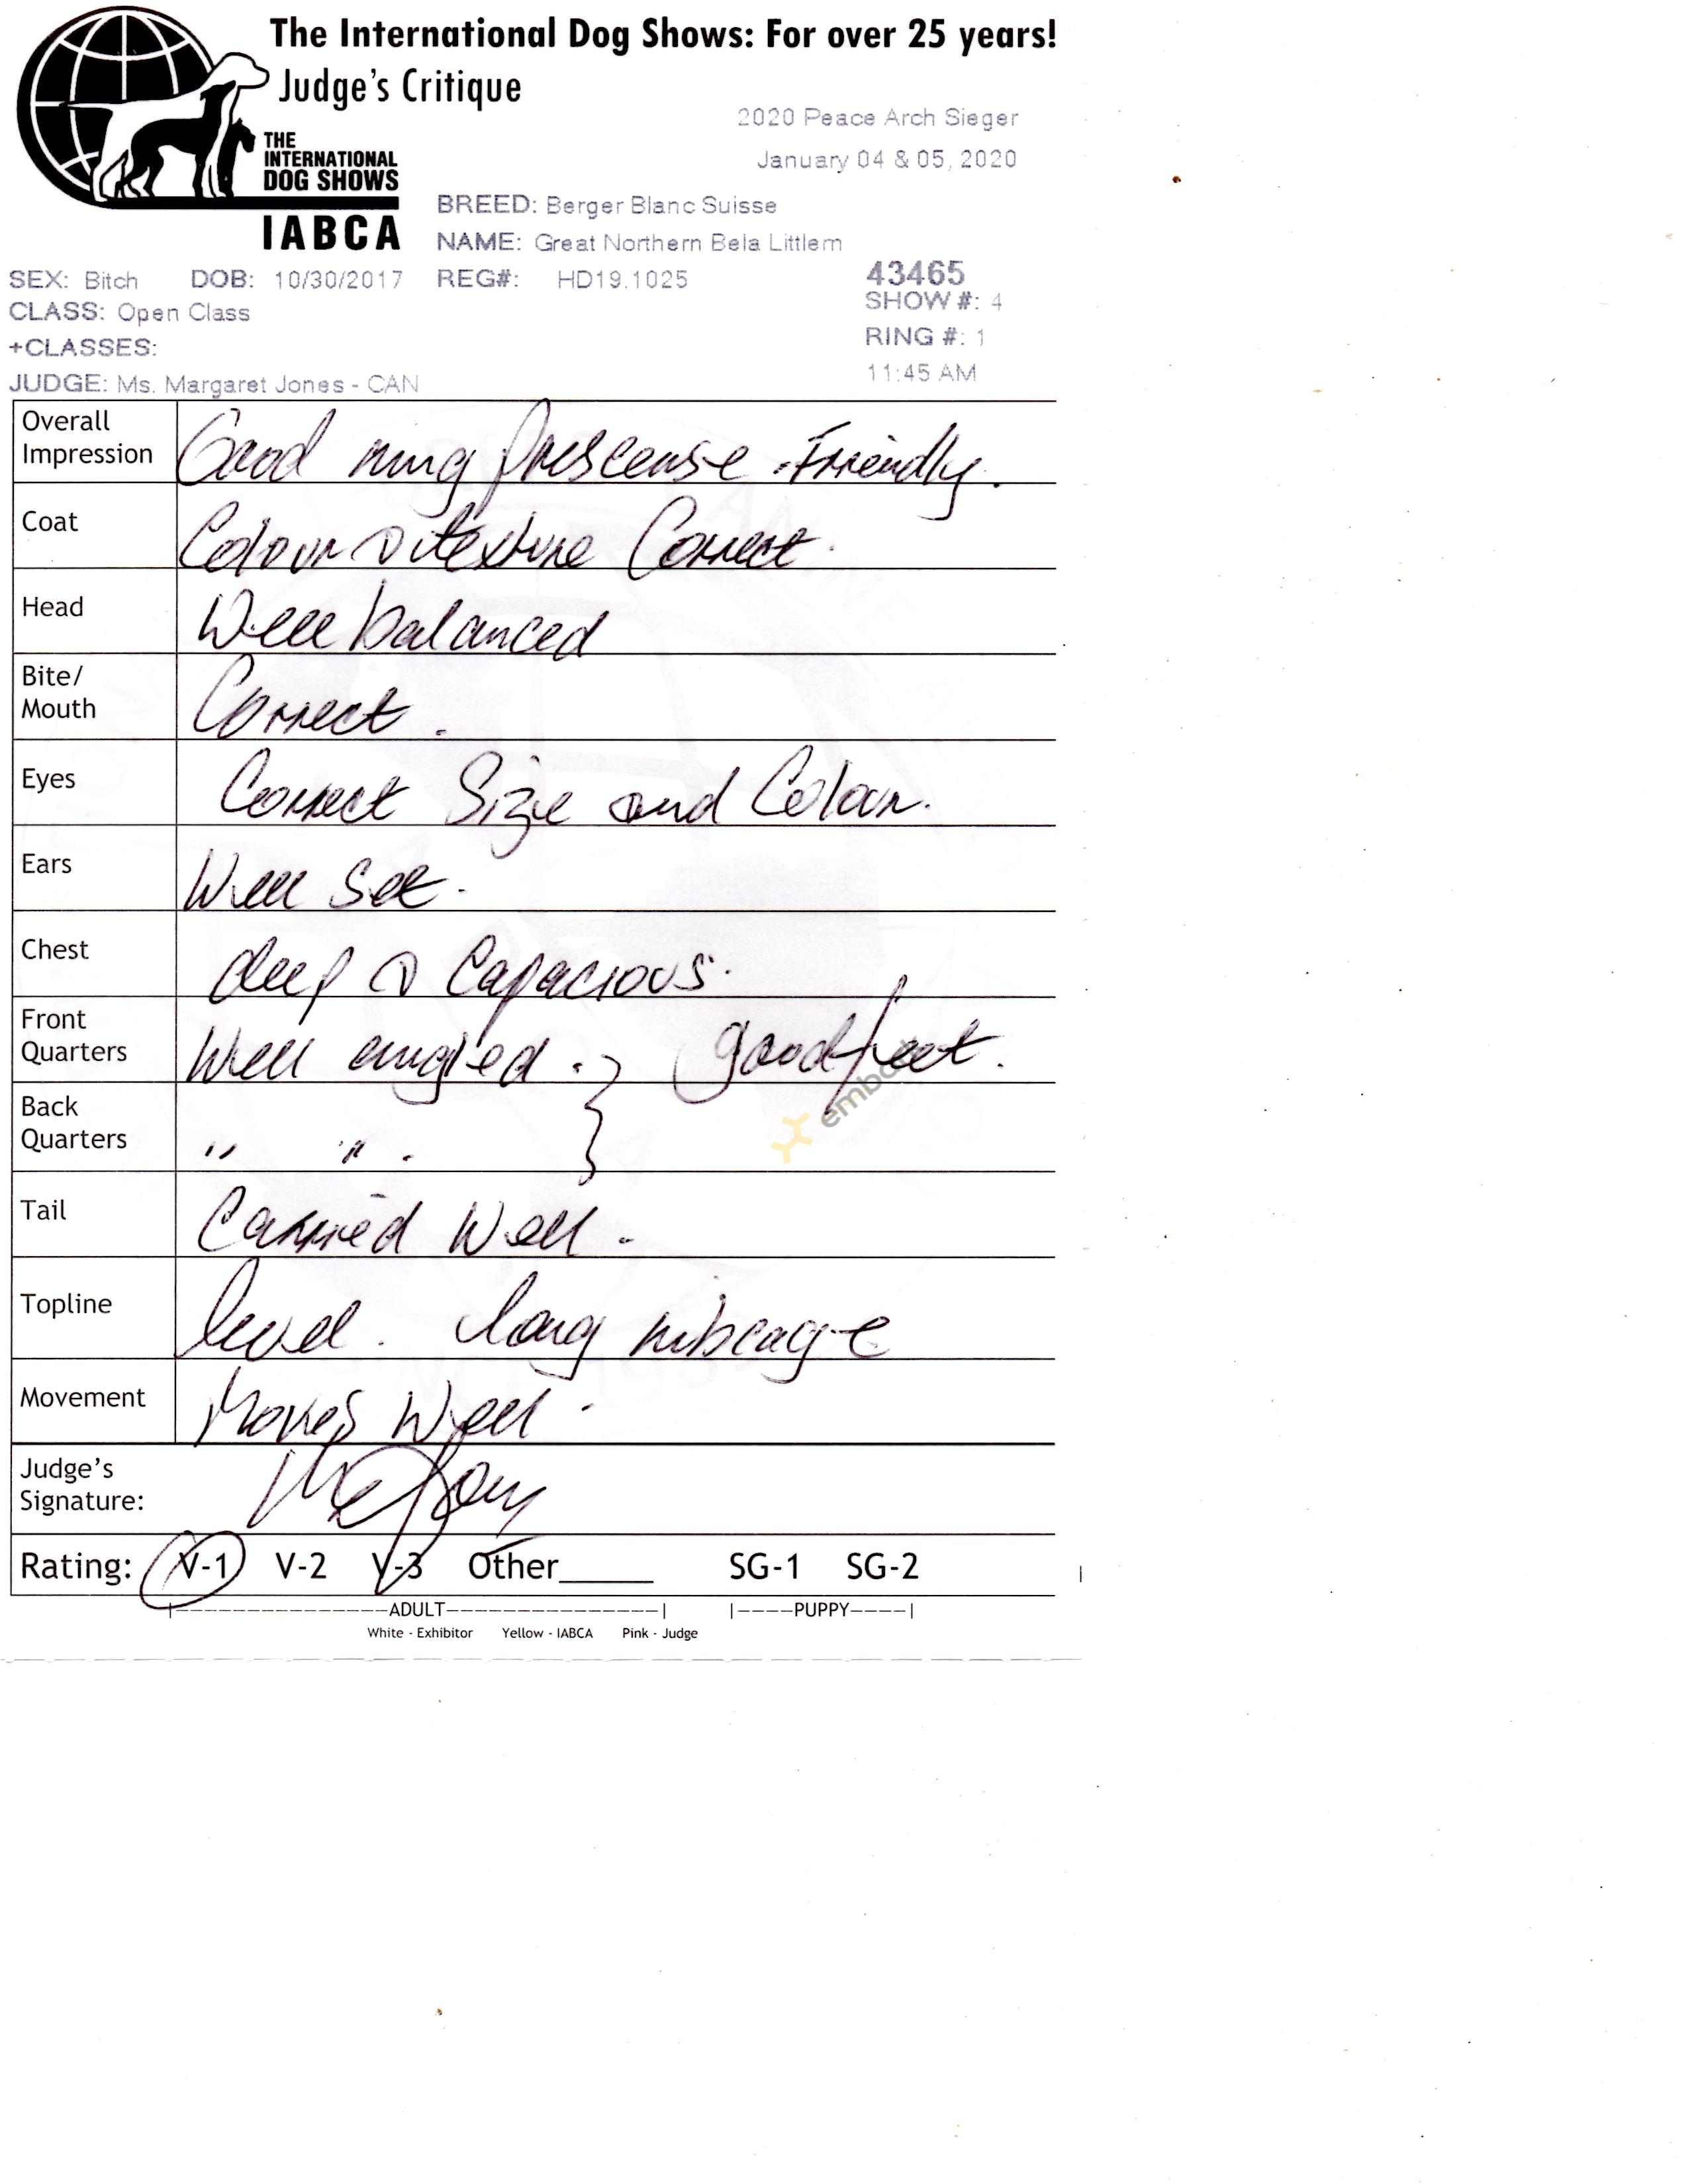 The International Dog Shows: For over 25 years!
Judge's Critique
2020 Peace Arch Sieger
January 04 & 05, 2020
THE
INTERNATIONAL
DOG SHOWS
IABCA
BREED: Berger Blanc Suisse
NAME: Great Northern Bela Littlem
SEX: Bitch DOB: 10/30/2017 REG#: HD19.1025 43465
CLASS: Open Class SHOW #: 4
+CLASSES: RING #: 1
JUDGE: Ms. Margaret Jones - CAN 11:45 AM
Overall Impression Good ring prescense. Friendly.
Coat Colour & texture Correct.
Head Well balanced
Bite/ Mouth Correct.
Eyes Correct Size and Colour.
Ears Well Set.
Chest deep & Capacious.
Front Quarters Well angled. } good feet.
Back Quarters " " .
Tail Carried Well.
Topline level. long ribcage
Movement Moves Well.
Judge's Signature:
Rating: V-1 V-2 V-3 Other_____ SG-1 SG-2
|-----ADULT-----| |----PUPPY----|
White - Exhibitor Yellow - IABCA Pink - Judge